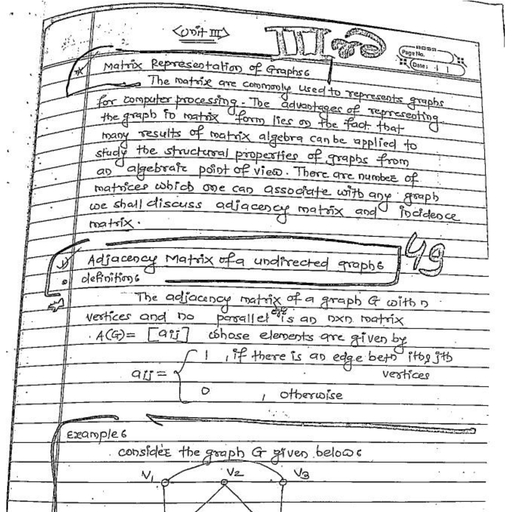 <Unit III>
III
Page No.
Date: | |
* Matrix Representation of Graphs :
The matrix are commonly used to represents graphs
for computer processing. The advantages of representing
the graph in matrix form lies on the fact that
many results of matrix algebra can be applied to
study the structural properties of graphs from
an algebraic point of view. There are number of
matrices which one can associate with any graph
we shall discuss adjacency matrix and incidence
matrix.
Adjacency Matrix of a undirected graph :
definition :
The adjacency matrix of a graph G with n
vertices and no parallel is an nxn matrix
A(G) = [aij] whose elements are given by
1 , if there is an edge betn ith & jth
vertices
aij =
0 , otherwise
Example :
consider the graph G given below :
V1 V2 V3